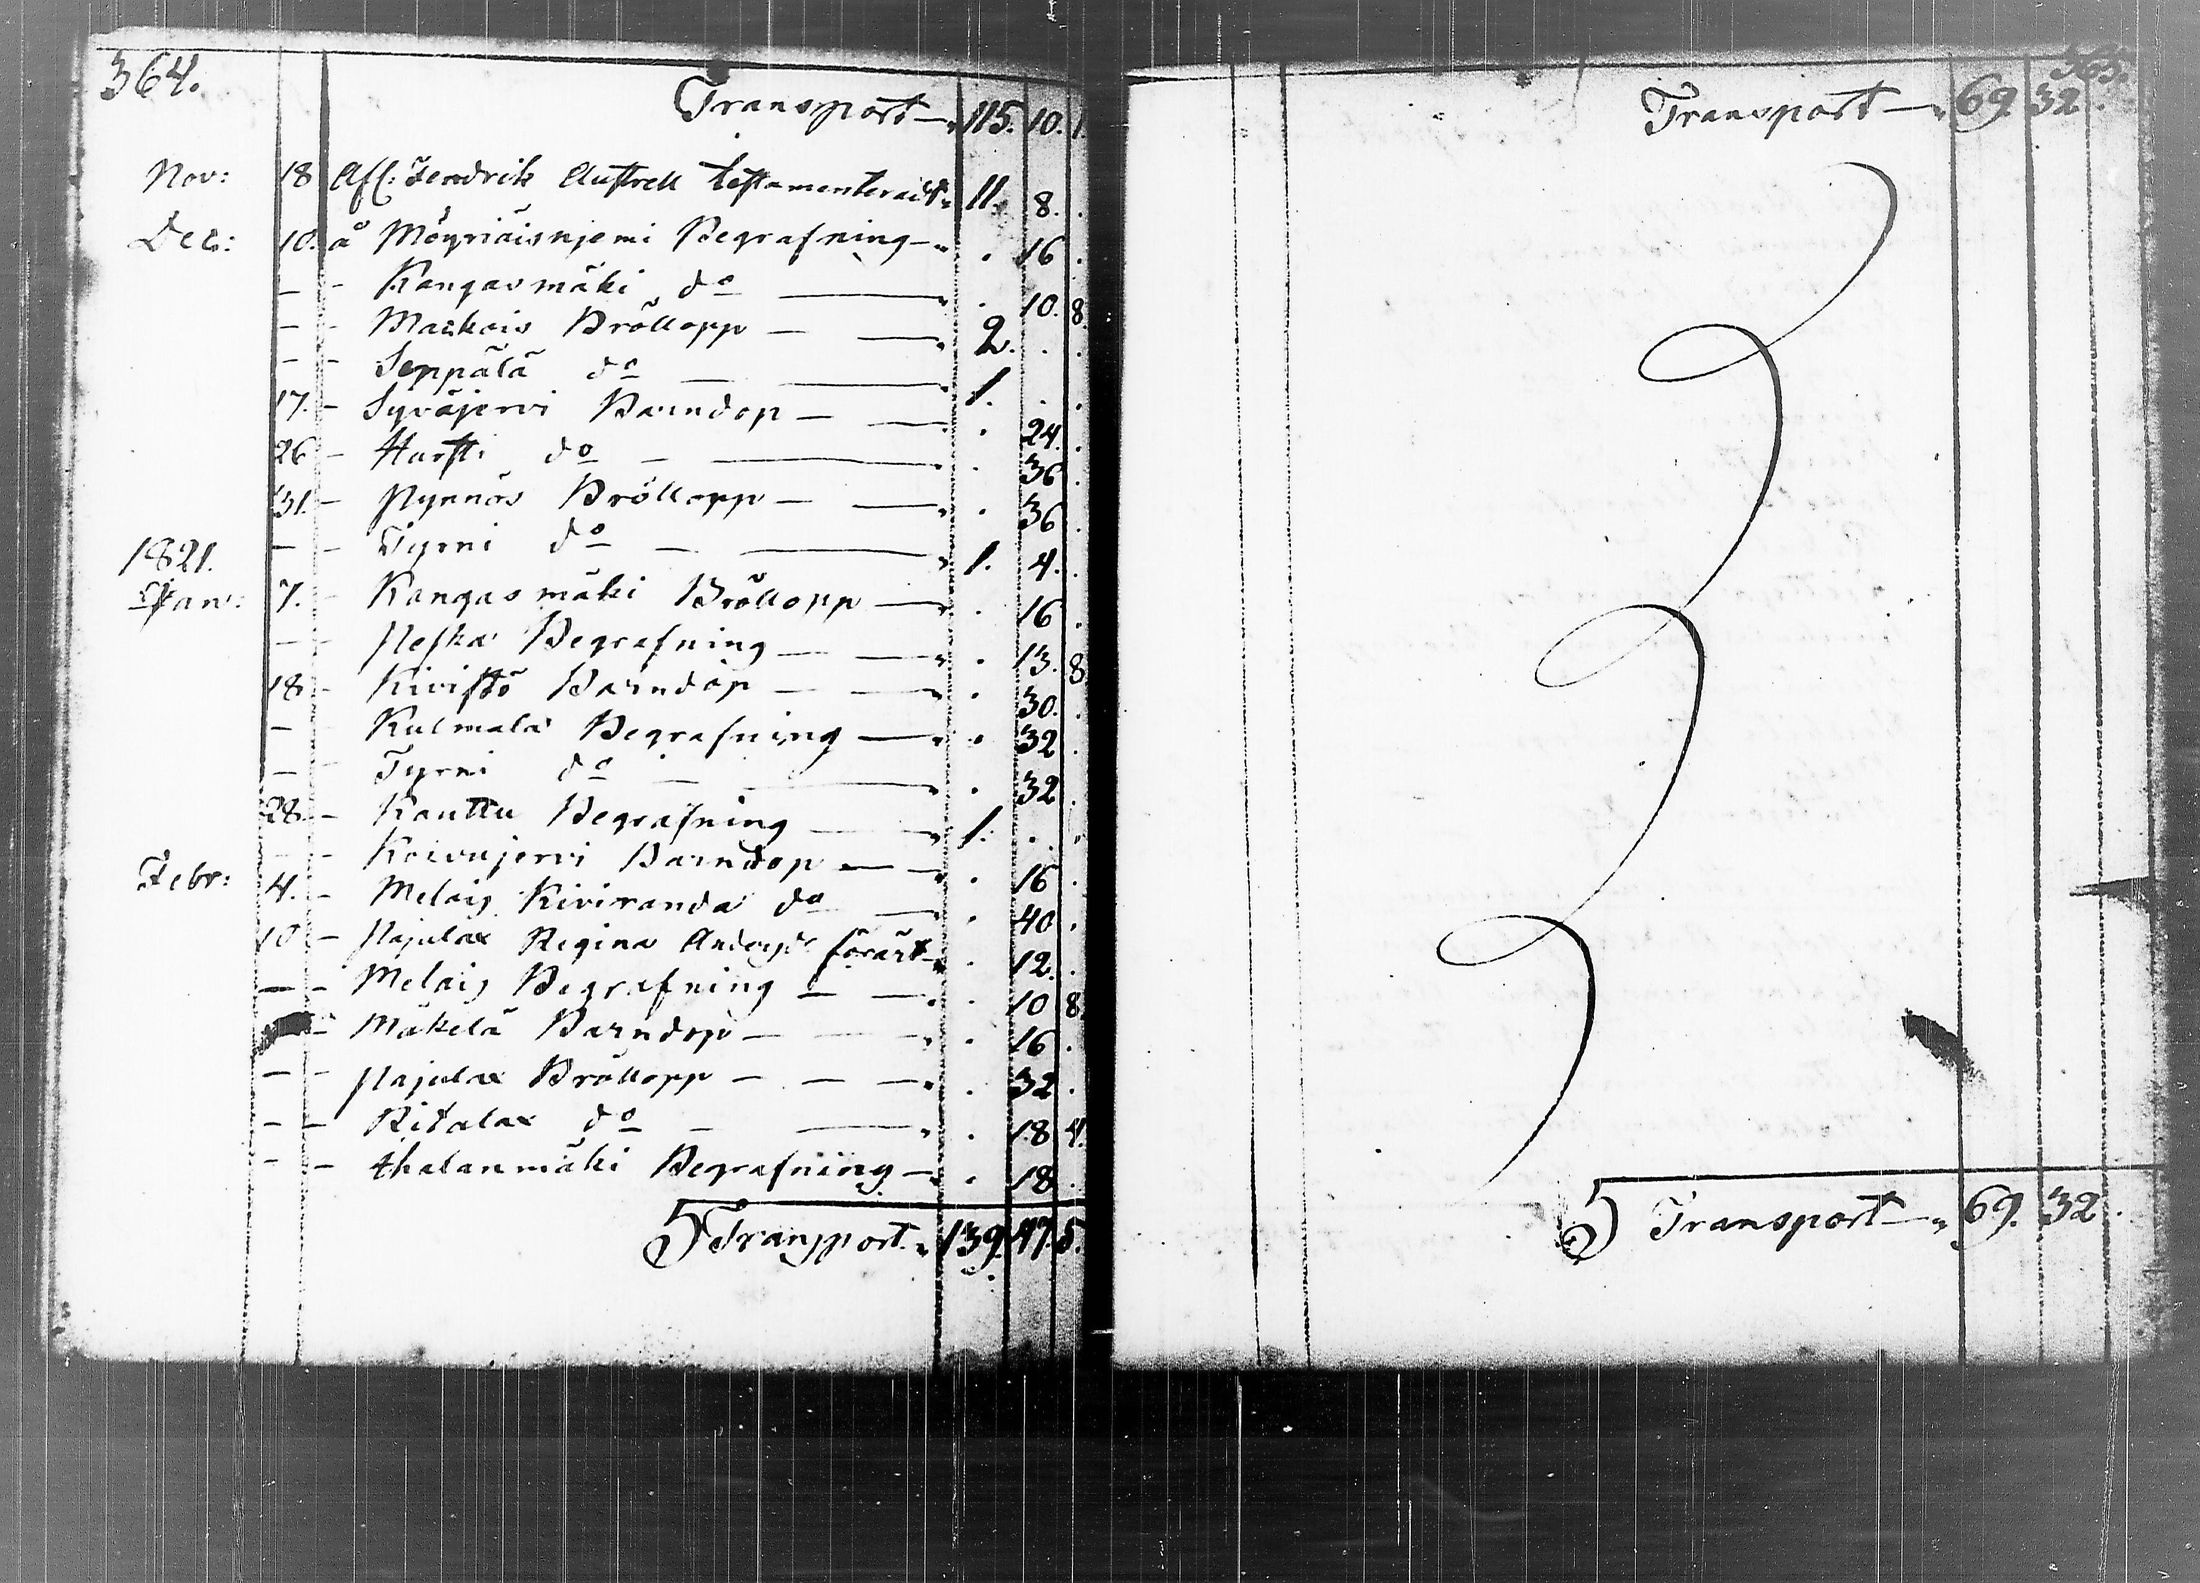 364.
Transport — 115. 10. 1.
Nov: 18 Afl: Hendrik Austrell testamenteradt 11. 8. .
Dec: 10. å Möyriäisnjemi Begrafning — . 16 .
— - Kangasmäki do — . 10. 8.
— - Markois Bröllopp — 2. . .
— - Seppälä do — 1. . .
17. - Syväjervi Barndop — . 24. .
26 - Hursti do — . 36 .
31. - Nynnäs Bröllopp — . 36 .
— - Tyrni do — 1. 4. .
1821.
Jan: 7. - Kangasmäki Bröllopp — . 16 .
— - Heska Begrafning — . 13. 8
18 - Kivistö Barndop — . 30. .
— - Kulmala Begrafning — . 32 .
— - Tyrni do — . 32 .
28 - Kauttu Begrafning — 1. . .
— - Koivujervi Barndop — . 16 .
Febr: 4. - Melais Kiviranda do — . 40 .
10 - Pajulax Regina förärt — . 12. .
— - Melais Begrafning — . 10 8.
- Mäkelä Barndop — . 16 .
— - Pajulax Bröllopp — . 32 .
- - Ritalax do — . 18 4.
- - Ahalanmäki Begrafning — . 18 .
Transport. 139. 47. 5.
365.
Transport — 69. 32 .
Transport — 69. 32 .